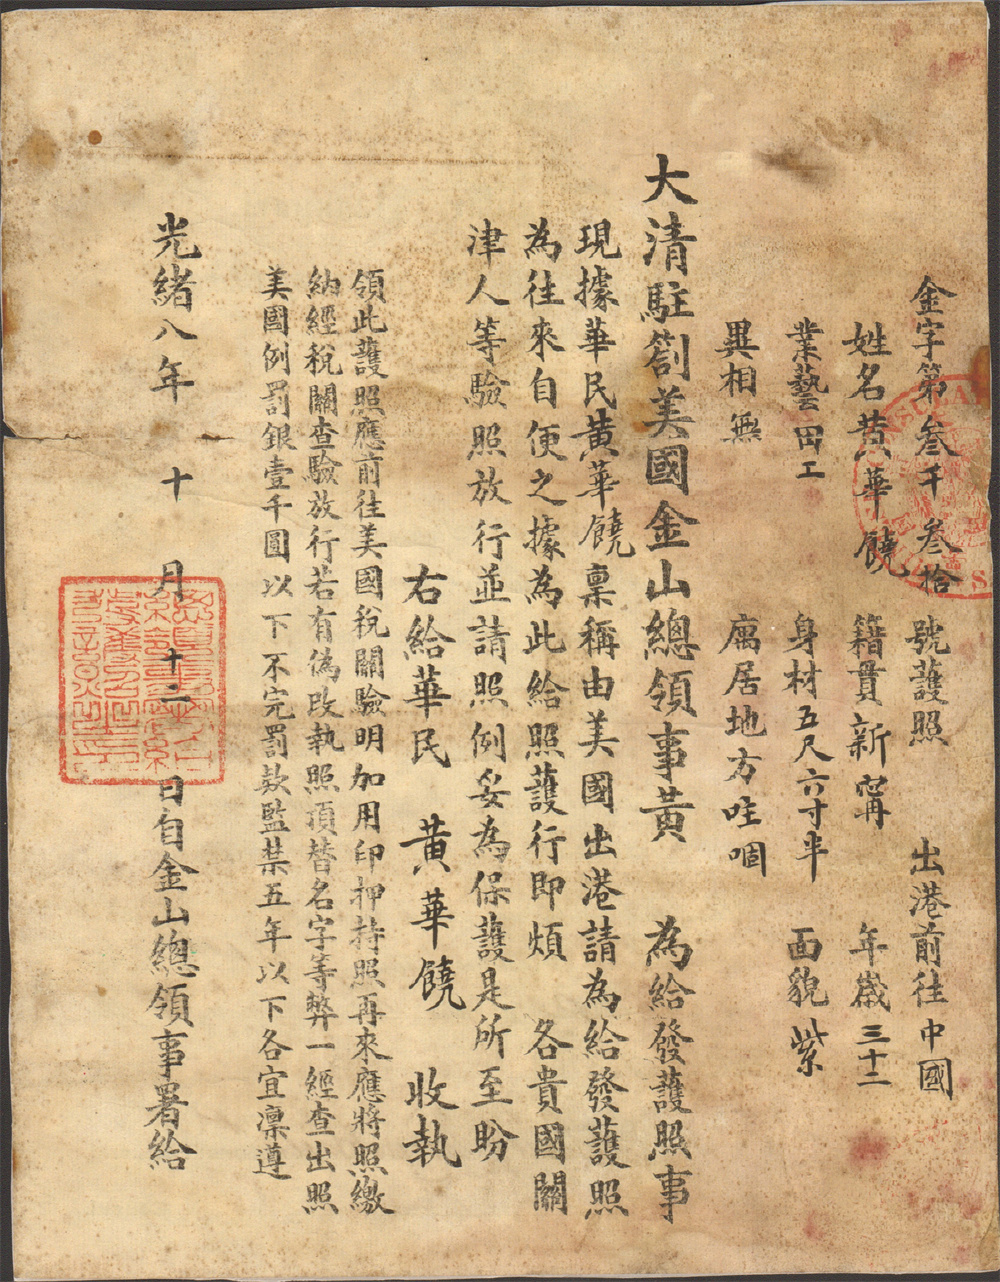 金字第叁千叁拾 號護照 出港前往中國
姓名黄華饒 籍貫新甯 年歲三十二
業藝田工 身材五尺六寸半 面貌紫
異相無 寓居地方哇啯
大清駐劄美國金山總領事黄 為給發護照事
現據華民黄華饒稟稱由美國出港請為給發護照
為往來自便之據為此給照護行即煩 各貴國關
津人等驗照放行並請照例妥為保護是所至盼
右給華民 黄華饒 收執
領此護照應前往美國稅關驗明加用印押持照再來應將照繳
納經稅關查驗放行若有偽改執照頂替名字等弊一經查出照
美國例罰銀壹千圓以下不完罰款監禁五年以下各宜凜遵
光緒八年 十 月 十二 日自金山總領事署給